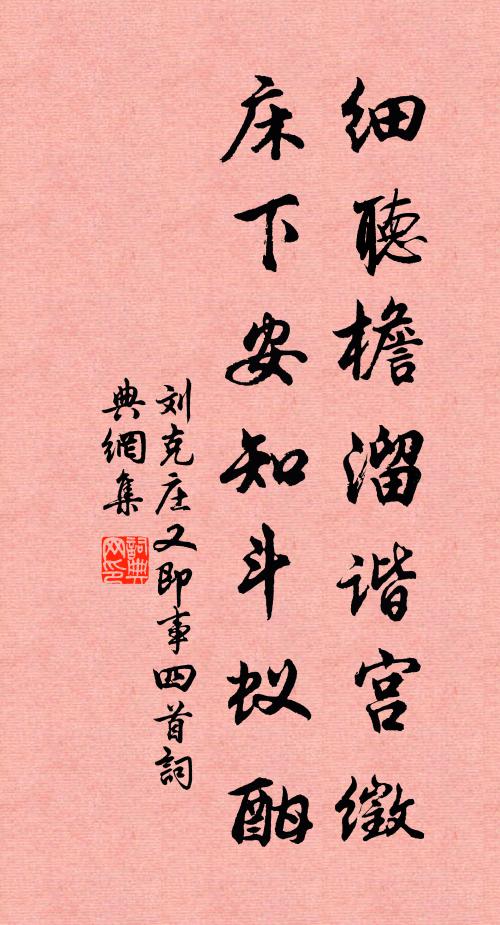 细聽檐溜谐宫徵
床下安知斗蚁酣
刘克庄又即事四首詞
典網集
詞典网印